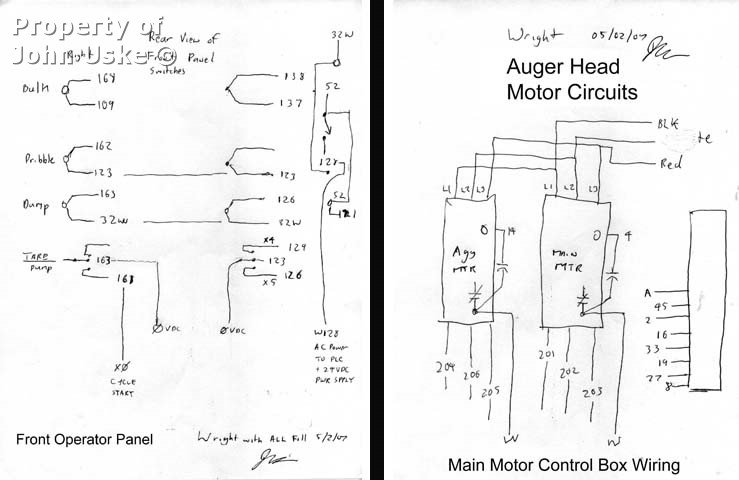 Property of
John Uske©
Right
Rear View of
Front Panel
Switches
32W
Bulk
164
109
138
137
52
Dribble
162
123
123
128
Dump
163
32W
126
32W
52
121
TARE
Pump
163
163
x4
129
123
126
x5
0VDC
0VDC
W128
AC Power
TO PLC
+ 24VDC
PWR SPPLY
XØ
CYCLE
START
Front Operator Panel
Wright with ALL Fill 5/2/07
Wright 05/02/07
Auger Head
Motor Circuits
BLK
te
Red
L1 L2 L3
L1 L2 L3
O 14
Agg
MTR
O 4
MAIN
MTR
A
45
2
16
33
19
77
8
204
206
205
201
202
203
N
N
Main Motor Control Box Wiring